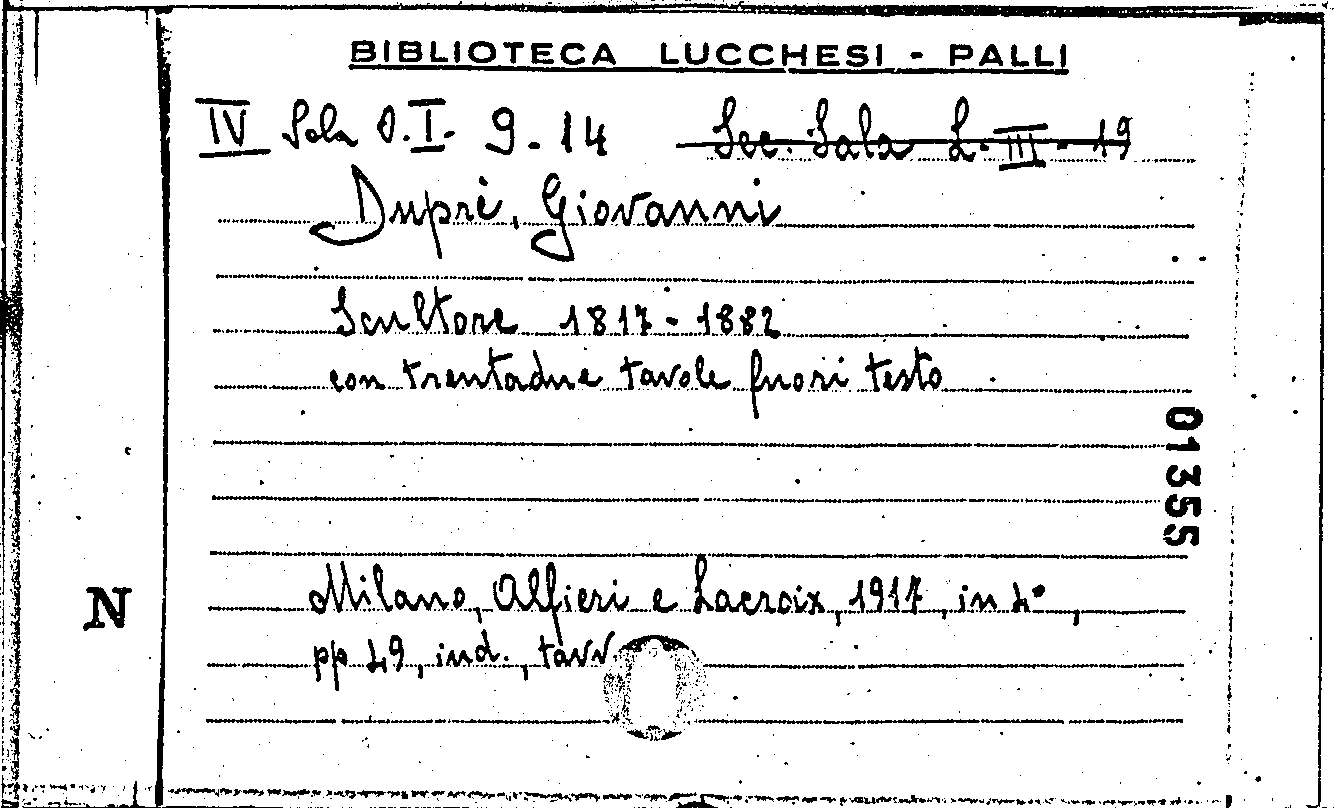 BIBLIOTECA LUCCHESI - PALLI
IV Sala O.I. 9-14 Sec. Sala L.III-19
Duprè, Giovanni
Scultore 1817-1882
con trentadue tavole fuori testo
01355
Milano, Alfieri e Lacroix, 1917, in 4°,
N
pp 49, ind., tavv